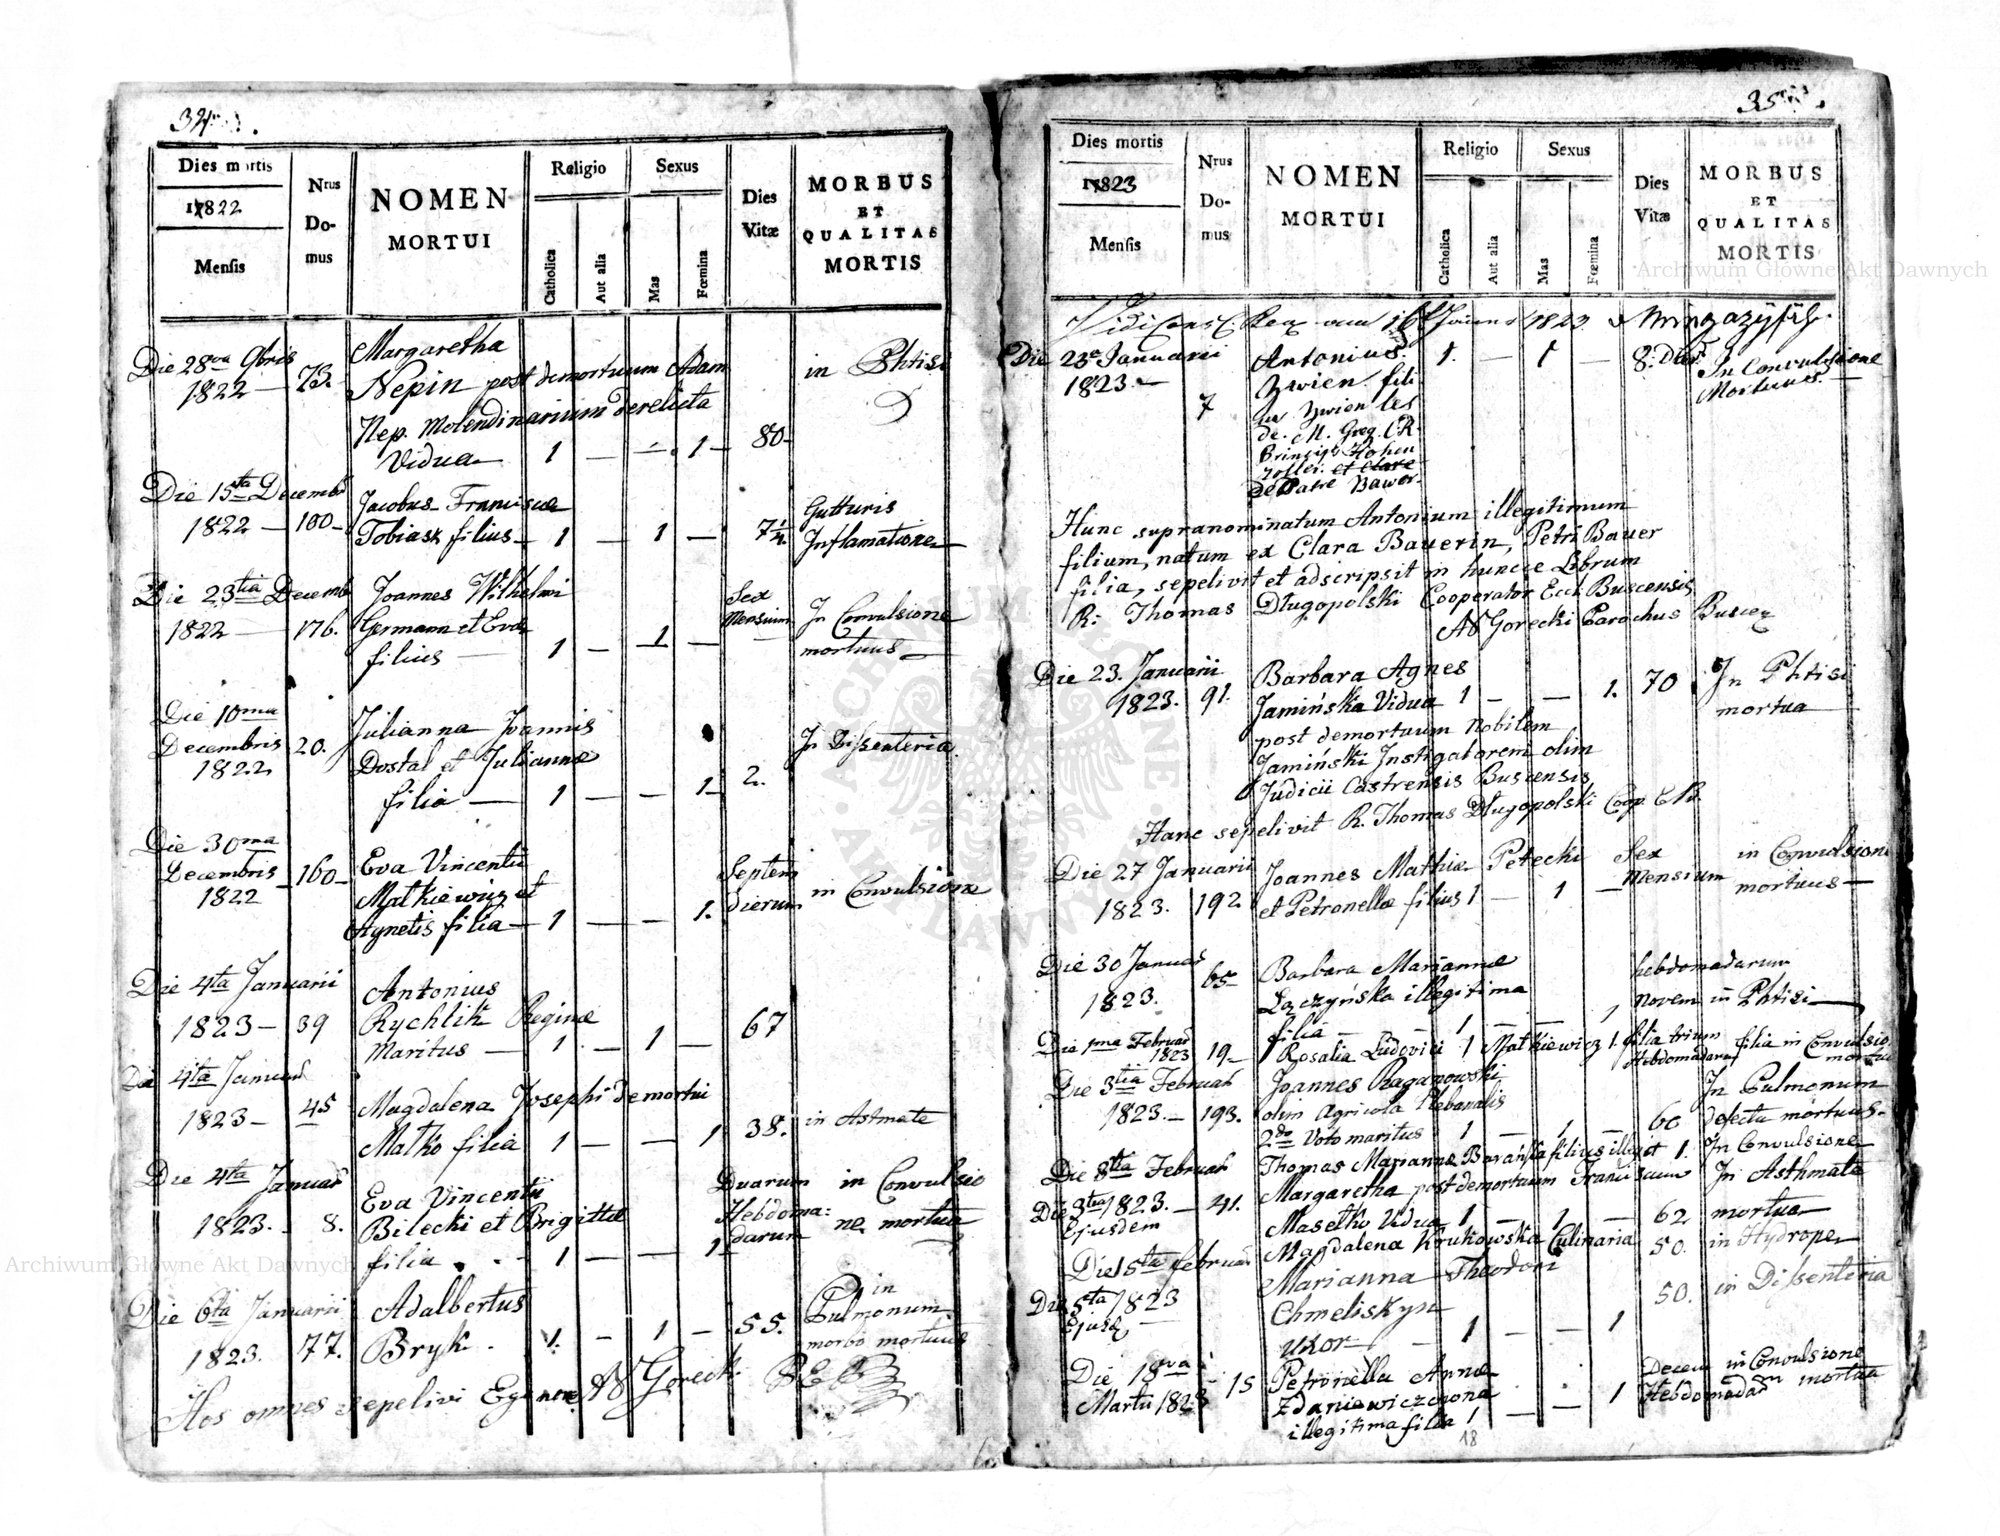 34
Dies mortis
1822
Mensis
Nrus
Do-
mus
NOMEN
MORTUI
Religio
Catholica
Aut alia
Sexus
Mas
Fœmina
Dies
Vitæ
MORBUS
ET
QUALITAS
MORTIS
Die 28va 9bris
1822 — 73.
Margaretha
Nepin post demortuum Adam
Nep. Molendinarium derelicta
Vidua — 1 — — 1 — 80 —
in Phtisi
Die 15ta Decembr
1822 — 100 —
Jacobus Franciscæ
Tobiasz filius — 1 — 1 — 7 1/4
Gutturis
Inflamatione
Die 23tia Decemb
1822 — 176.
Joannes Wilhelmi
Germann et Evæ
filius — 1 — 1 —
Sex
Mensium
In Convulsione
mortuus —
Die 10ma
Decembris 20.
1822
Julianna Joannis
Dostal et Juliannæ
filia — 1 — — 1 — 2.
In Dissenteria
Die 30ma
Decembris — 160 —
1822
Eva Vincentii
Matkiewicz et
Agnetis filia — 1 — — 1.
Septem
dierum
in Convulsione
Die 4ta Januarii
1823 — 39
Antonius
Rychlik Reginæ
Maritus — 1 — 1 — 67
Die 4ta Januarii
1823 — 45
Magdalena Josephi demortui
Matko filia 1 — — 1 38.
in Astmate
Die 4ta Januar
1823. — 8.
Eva Vincentii
Bilecki et Brigittæ
filia . . - 1 — — 1
Duarum
Hebdoma:
darum
in Convulsio
ne mortua
Die 6ta Januarii
1823. 77.
Adalbertus
Bryk . 1. — 1 — 55.
in
Pulmonum
morbo mortuus
Hos omnes sepelivi Ego
Gorecki
35
Dies mortis
1823
Mensis
Nrus
Do-
mus
NOMEN
MORTUI
Religio
Catholica
Aut alia
Sexus
Mas
Fœmina
Dies
Vitæ
MORBUS
ET
QUALITAS
MORTIS
1823
Die 23a Januarii
1823. —
7
Antonius
Zwien fili
Zwien
de. M. Greg.
Princip. Hohen
et Clare
de Patre Bawor
1. — 1 — 8. Dier
In Convulsione
Mortuus —
Hunc supranominatum Antonium illegitimum
filium, natum ex Clara Bauerin, Petri Bauer
filia, sepelivit et adscripsit in huncce Librum
R: Thomas Długopolski Cooperator Eccl. Buscensis
Gorecki Parochus Buscen
Die 23. Januarii
1823. 91.
Barbara Agnes
Jamińska Vidua 1 — — 1. 70
post demortuum Nobilem
Jamiński Instigatorem olim
Judicii Castrensis Buscensis
In Phtisi
mortua
Hanc sepelivit R. Thomas Długopolski Coop. E. B.
Die 27 Januarii
1823. 192
Joannes Mathiæ Petecki
et Petronellæ filius 1 — 1 —
Sex
Mensium
in Convulsione
mortuus —
Die 30 Januar
1823. 65
Barbara Mariannæ
Łączyńska illegitima
filia — 1 — — 1
hebdomadarum
Novem in Phtisi —
Die 1ma Februar
1823 19 —
Rosalia Ludovici 1 Matkiewicz 1. filia trium
Hebdomadarum
filia in Convulsio
mortua
Die 3tia Februar
1823. — 193.
Joannes Raganowski
olim Agricola Plebanalis
2do Voto maritus 1 — 1 — 60
In Pulmonum
defectu mortuus.
Die 8tia Februar
Thomas Mariannæ Barańska filius illegit 1. In Convulsione
Die 3tia 1823. — 41.
Ejusdem
Margaretha post demortuum Franciscum
Masełko Vidua 1 — 1 — 62
In Asthmate
mortua
Die 15ta februar
Magdalena Krukowska Culinaria 50. in Hydrope
Die 5ta 1823
Ejusd —
Marianna Theodori
Chmeliskyn
Uxor — 1 — — 1
50. in Dissenteria
Die 18va
Martii 1823 15
Petronella Annæ
Zdaniewiczczona
illegitima filia 1 — — 1
Decem
Hebdomadar
in Convulsione
mortua
18
Archiwum Główne Akt Dawnych
Archiwum Główne Akt Dawnych
ARCHIWUM GŁÓWNE AKT DAWNYCH